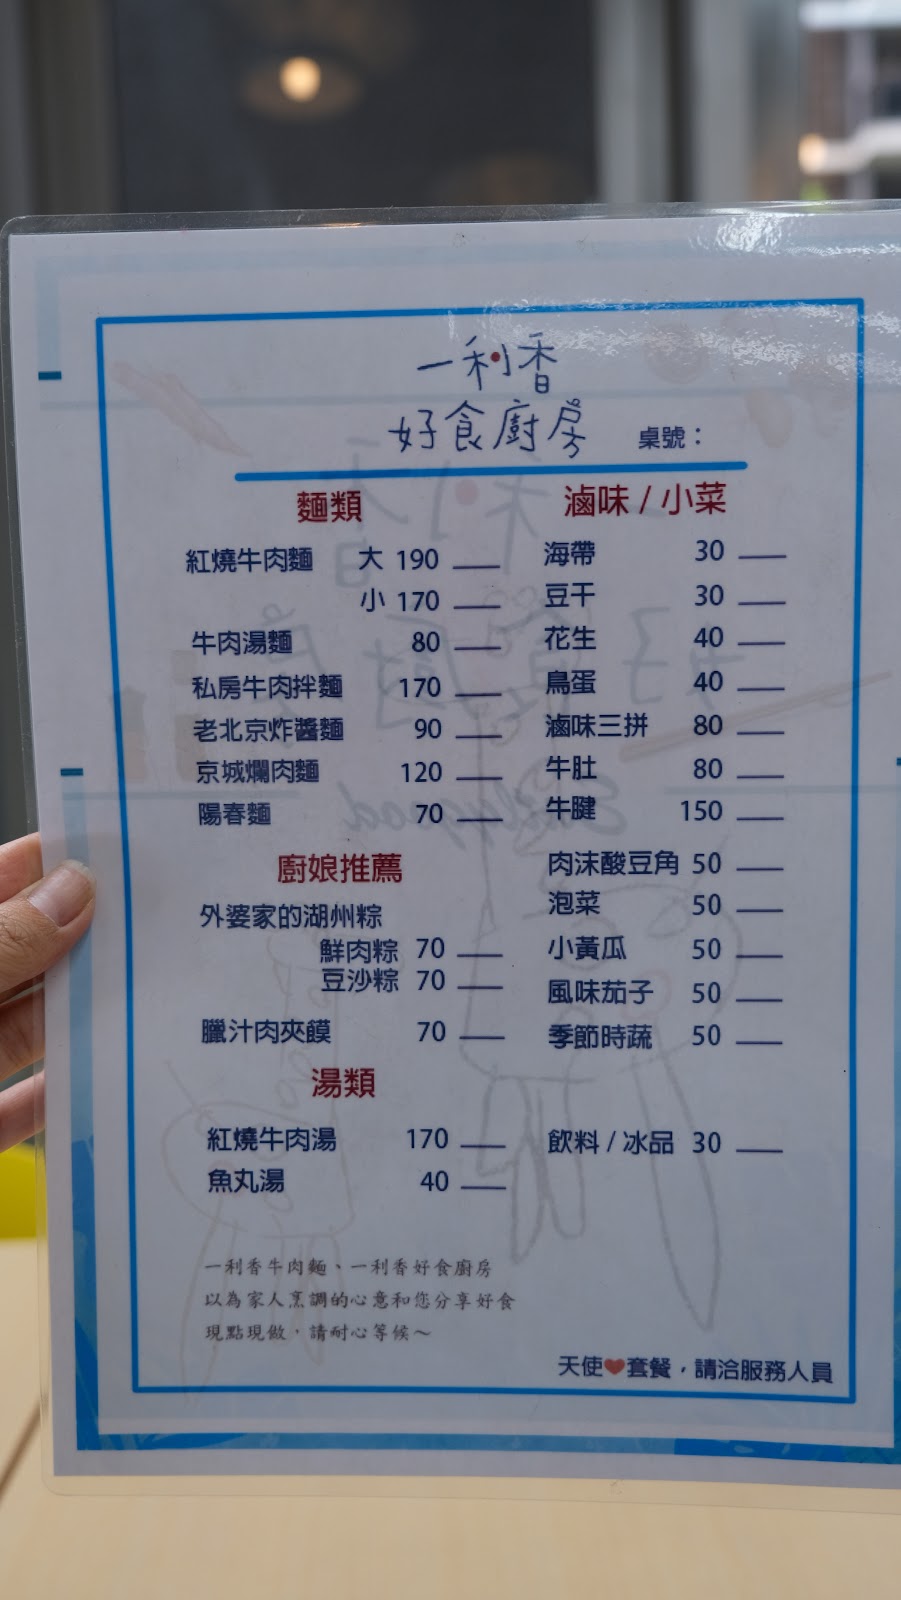 一利香
好食廚房
桌號：
麵類
紅燒牛肉麵 大 190
小 170
牛肉湯麵 80
私房牛肉拌麵 170
老北京炸醬麵 90
京城爛肉麵 120
陽春麵 70
廚娘推薦
外婆家的湖州粽
鮮肉粽 70
豆沙粽 70
臘汁肉夾饃 70
湯類
紅燒牛肉湯 170
魚丸湯 40
滷味 / 小菜
海帶 30
豆干 30
花生 40
鳥蛋 40
滷味三拼 80
牛肚 80
牛腱 150
肉沫酸豆角 50
泡菜 50
小黃瓜 50
風味茄子 50
季節時蔬 50
飲料 / 冰品 30
一利香牛肉麵、一利香好食廚房
以為家人烹調的心意和您分享好食
現點現做，請耐心等候～
天使❤套餐，請洽服務人員